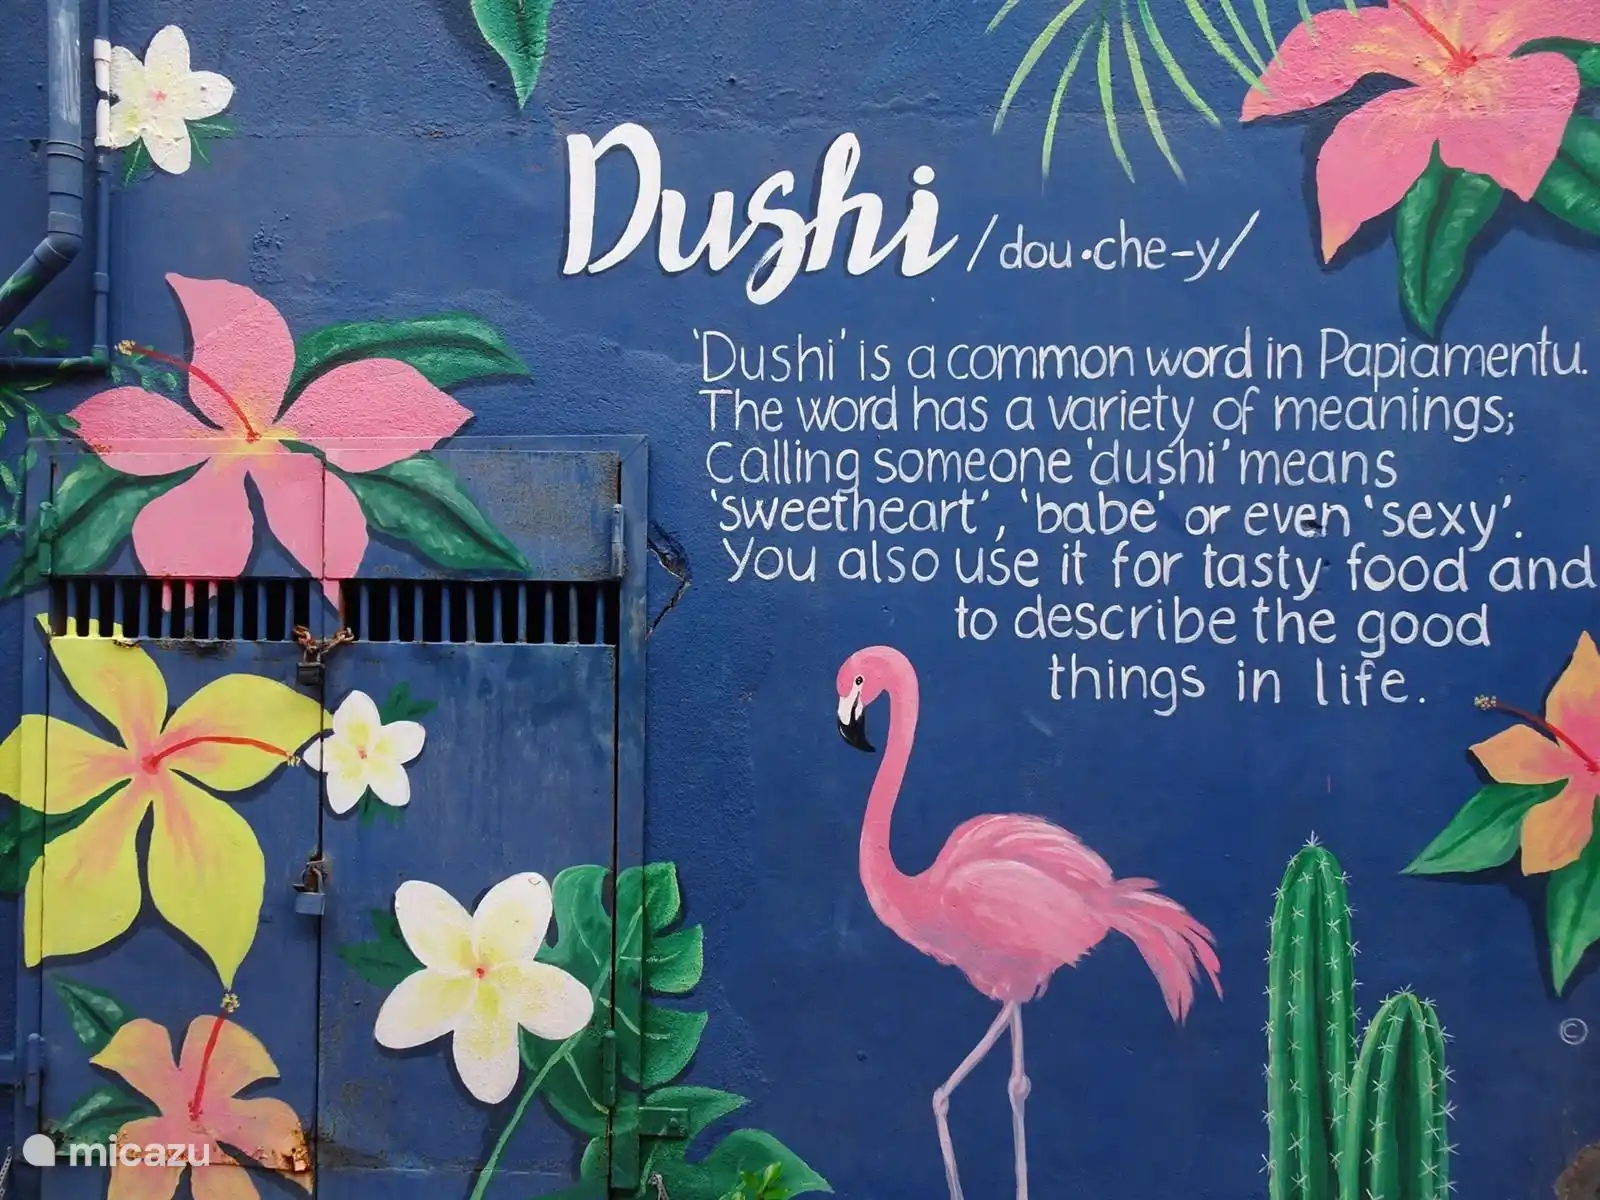 Dushi /dou•che-y/
'Dushi' is a common word in Papiamentu.
The word has a variety of meanings;
Calling someone 'dushi' means
'sweetheart', 'babe' or even 'sexy'.
You also use it for tasty food and
to describe the good
things in life.
©
micazu